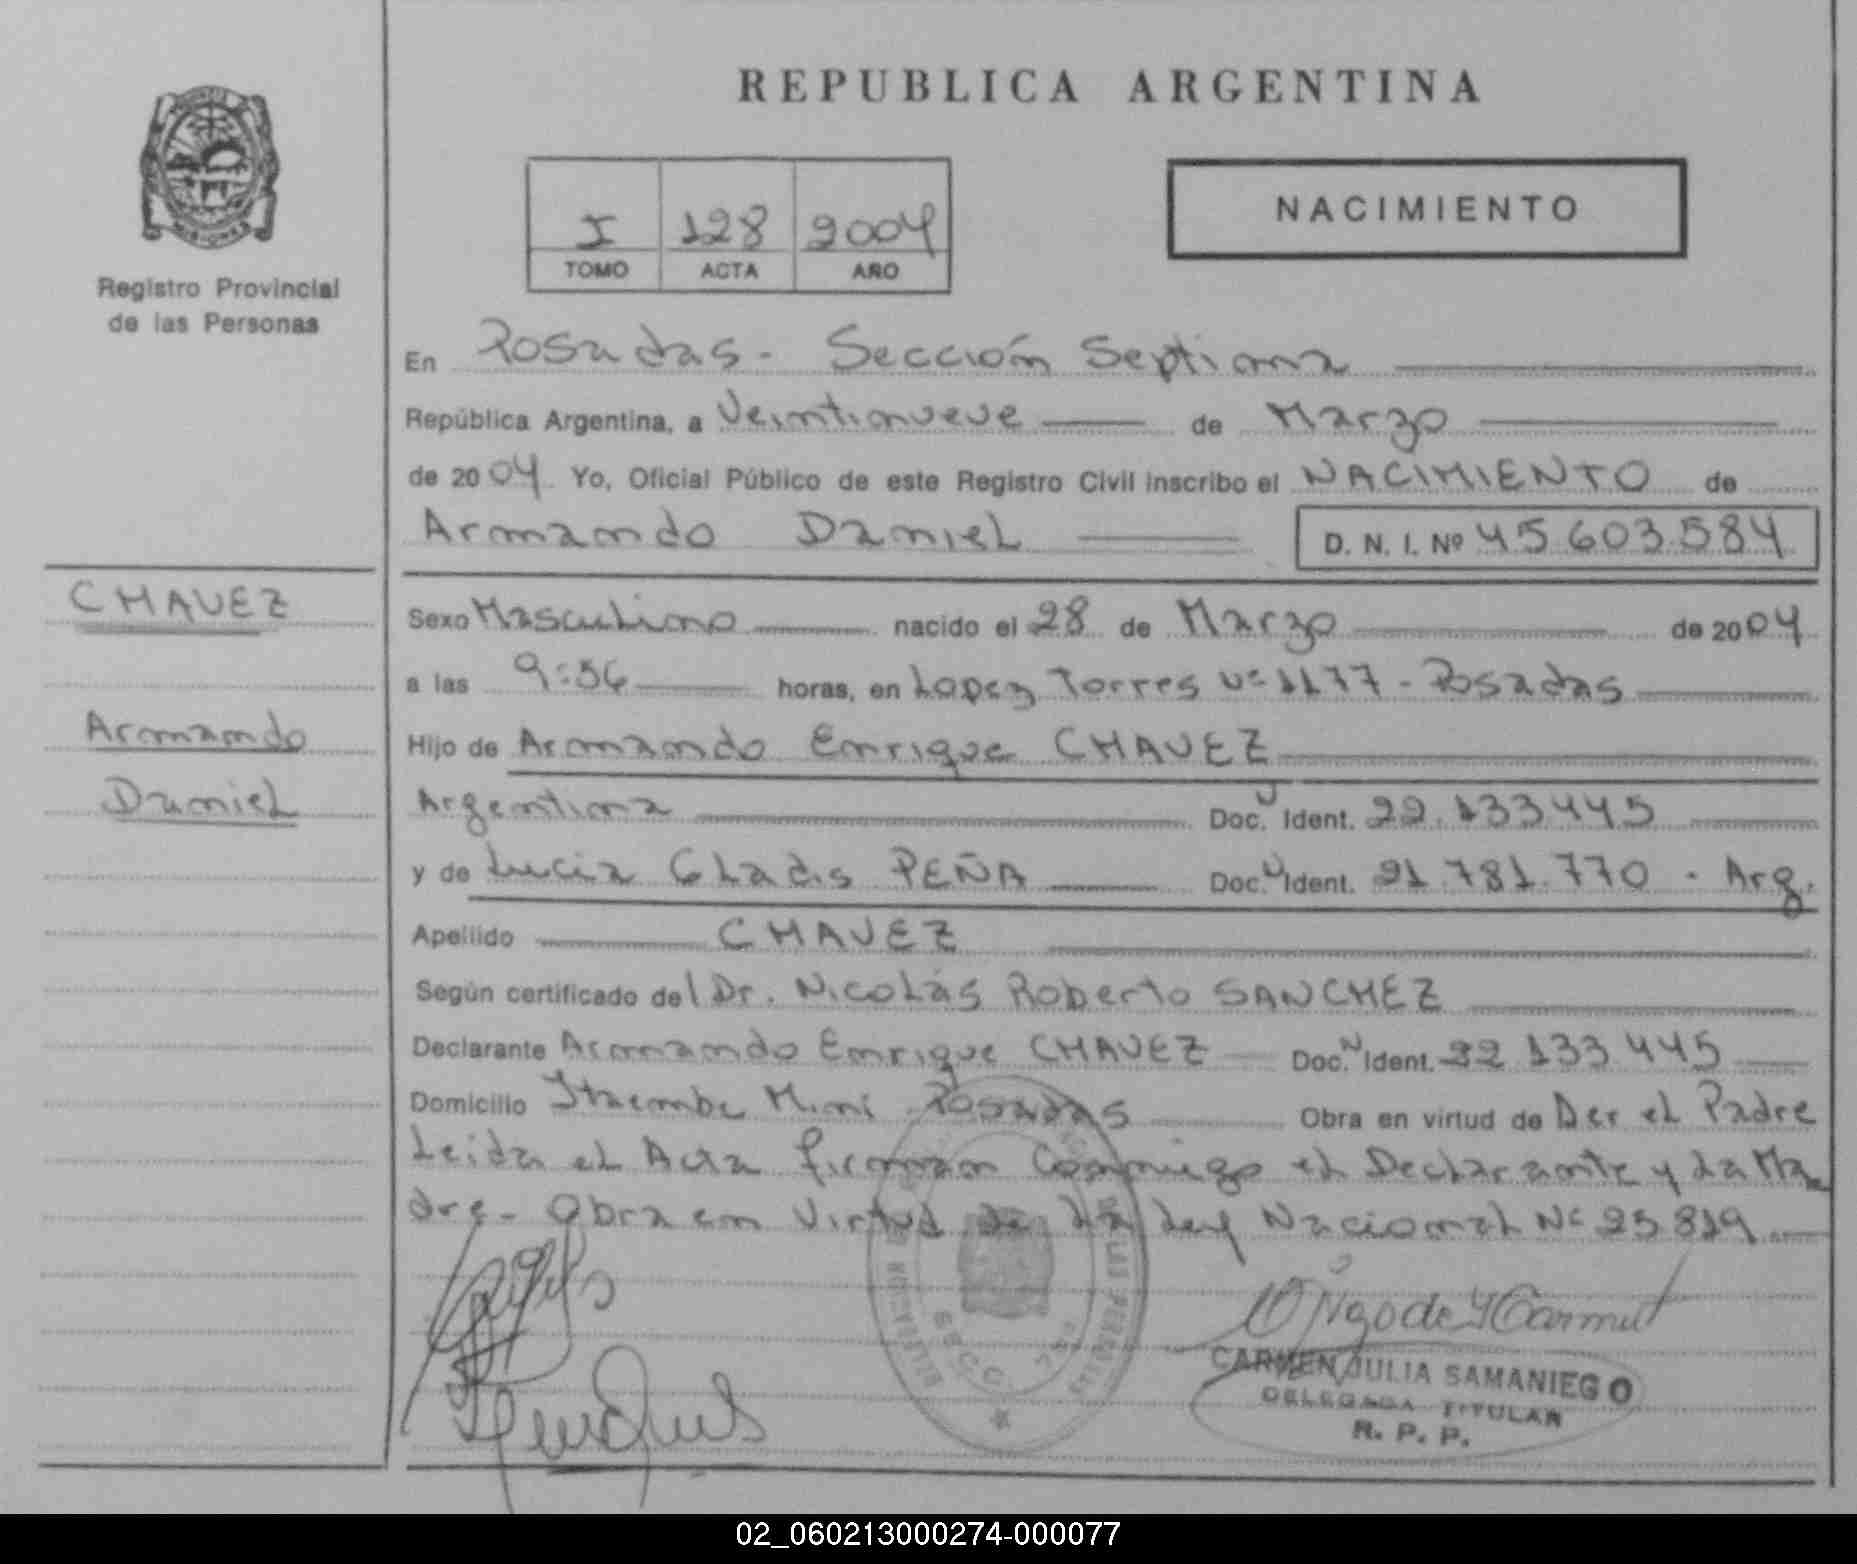 REPUBLICA ARGENTINA
MISIONES
Registro Provincial
de las Personas
I 128 2004
TOMO ACTA AÑO
NACIMIENTO
En Posadas - Sección Septima
República Argentina, a Veintinueve de Marzo
de 2004 Yo, Oficial Público de este Registro Civil inscribo el NACIMIENTO de
Armando Daniel D. N. I. Nº 45.603.584
CHAVEZ
Armando
Daniel
Sexo Masculino nacido el 28 de Marzo de 2004
a las 9:56 horas, en Lopez Torres Nº 1177 - Posadas
Hijo de Armando Enrique CHAVEZ
Argentina Doc. Ident. 22.133.445
y de Lucia Gladis PEÑA Doc. Ident. 21.781.770 - Arg.
Apellido CHAVEZ
Según certificado del Dr. Nicolás Roberto SANCHEZ
Declarante Armando Enrique CHAVEZ Doc. Ident. 22.133.445
Domicilio Itaembe Mini Posadas Obra en virtud de Ser el Padre
Leida el Acta firman Conmigo el Declarante y La Ma
dre - Obra en Virtud de La Ley Nacional Nº 25.819
CARMEN JULIA SAMANIEGO
DELEGADA TITULAR
R. P. P.
02_060213000274-000077